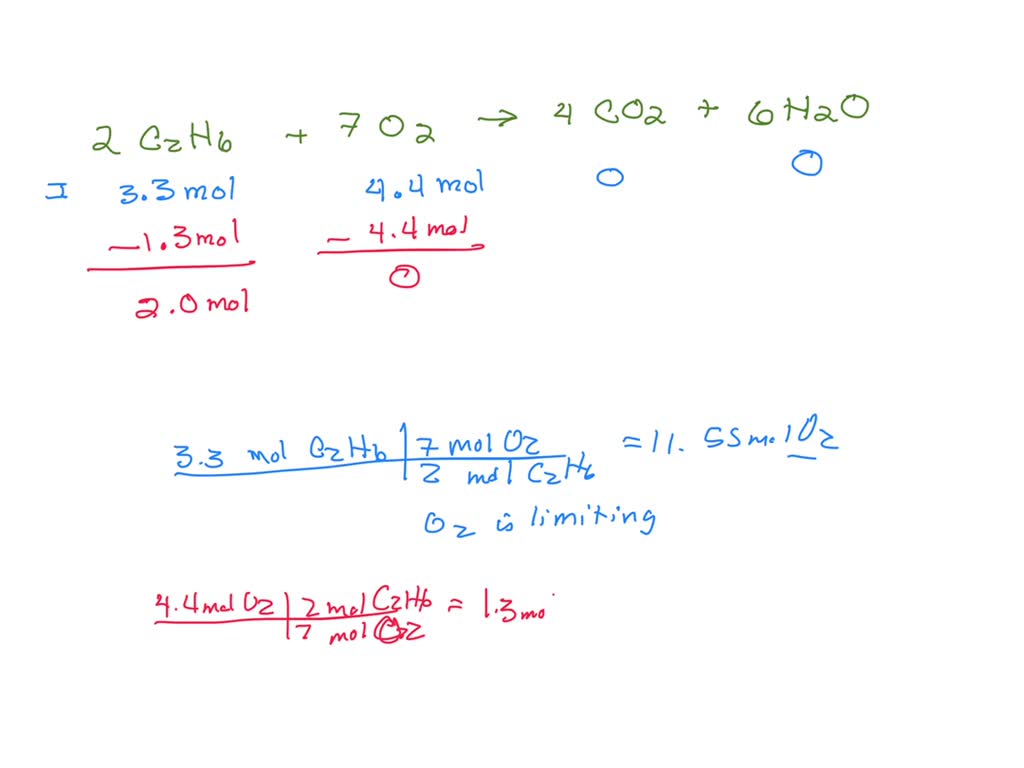 2 C2H6 + 7 O2 → 4 CO2 + 6 H2O
I 3.3 mol 4.4 mol 0 0
-1.3 mol - 4.4 mol
2.0 mol 0
3.3 mol C2H6 | 7 mol O2 = 11.55 mol O2
2 mol C2H6
O2 is limiting
4.4 mol O2 | 2 mol C2H6 = 1.3 mo
7 mol O2